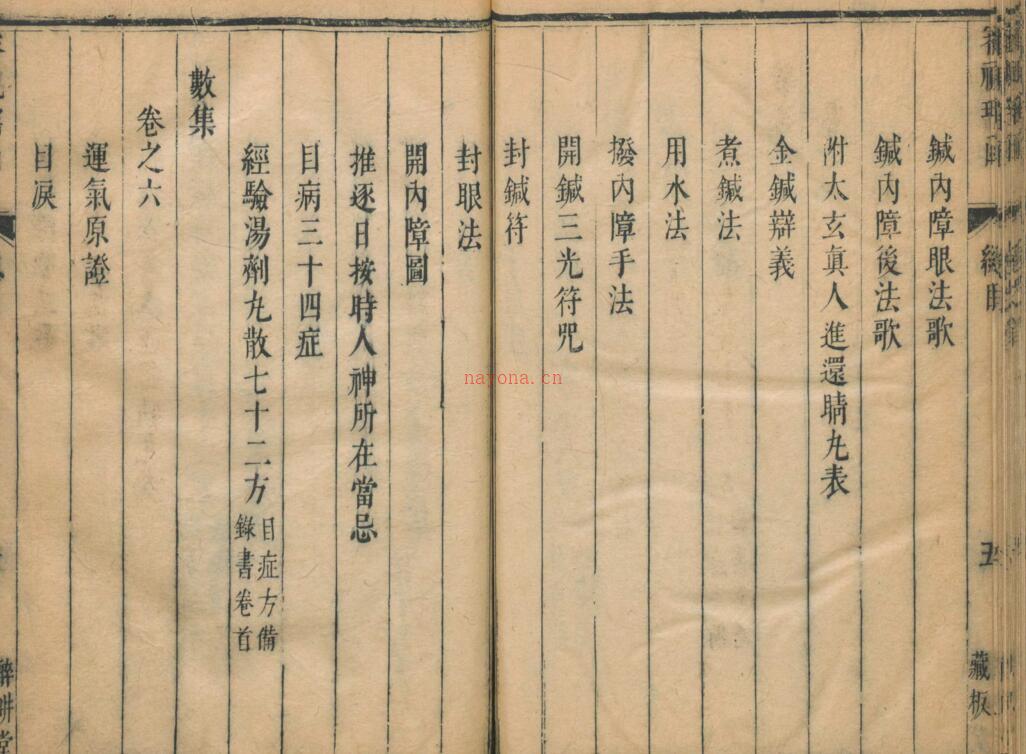 鍼內障眼法歌
鍼內障後法歌
附太玄眞人進還睛丸表
金鍼辯義
煮鍼法
用水法
撥內障手法
開鍼三光符咒
封鍼符
封眼法
開內障圖
推逐日按時人神所在當忌
目病三十四症
經驗湯劑丸散七十二方
目症方備
錄書卷首
數集
卷之六
運氣原證
目淚
總目
五
藏板
nayona.cn